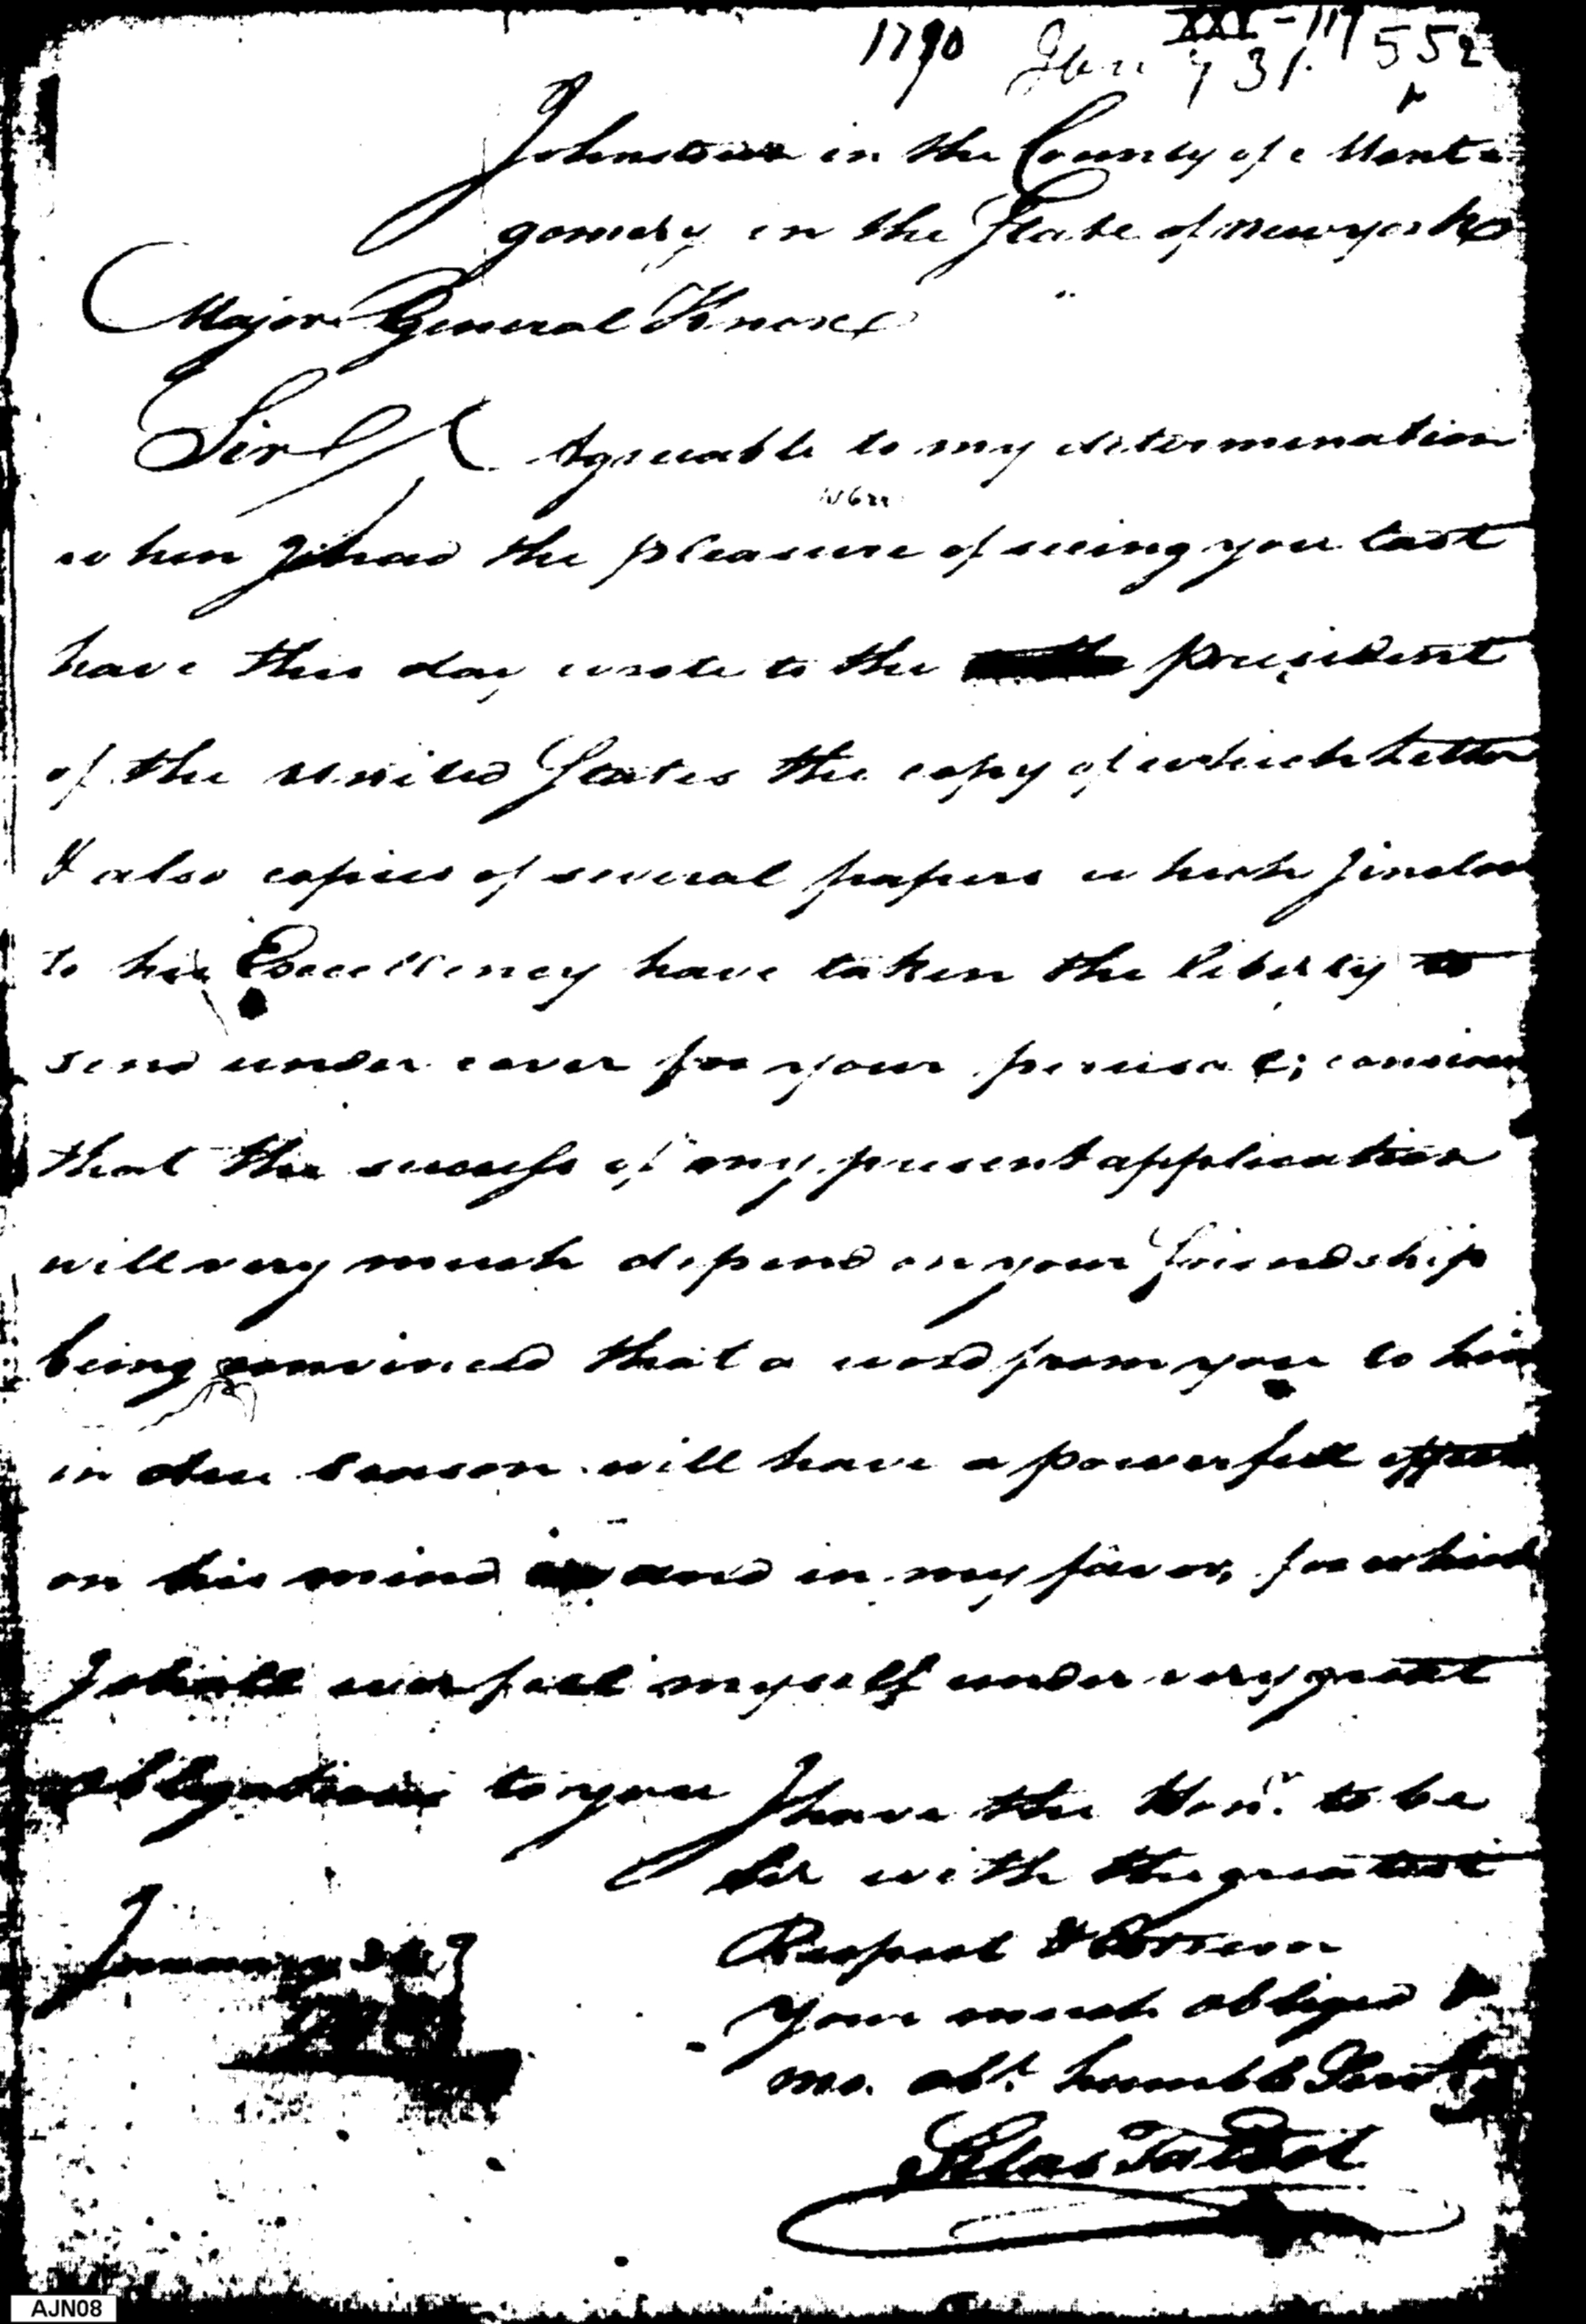 1790 Jany 31. XXV-117 552
Johnstown in the County of Mont
gomery in the State of newyork
Major General Knox
Sir Agreeable to my determination
when I had the pleasure of seeing you last
have this day wrote to the president
of the United States the copy of which Letter
& also copies of several papers which I inclose
to his Excellency have taken the liberty to
send under cover for your perusal; conscious
that the success of my present application
will very much depend on your friendship
being convinced that a word from you to him
in due season will have a powerfull effect
on his mind and in my favor, for which
I shall ever feel myself under very great
obligations to you I have the Honr. to be
Sir with the greatest
Respect & Esteem
January 31
Your much obliged &
mo. obt. humble Servt
Silas Talbot
AJN08